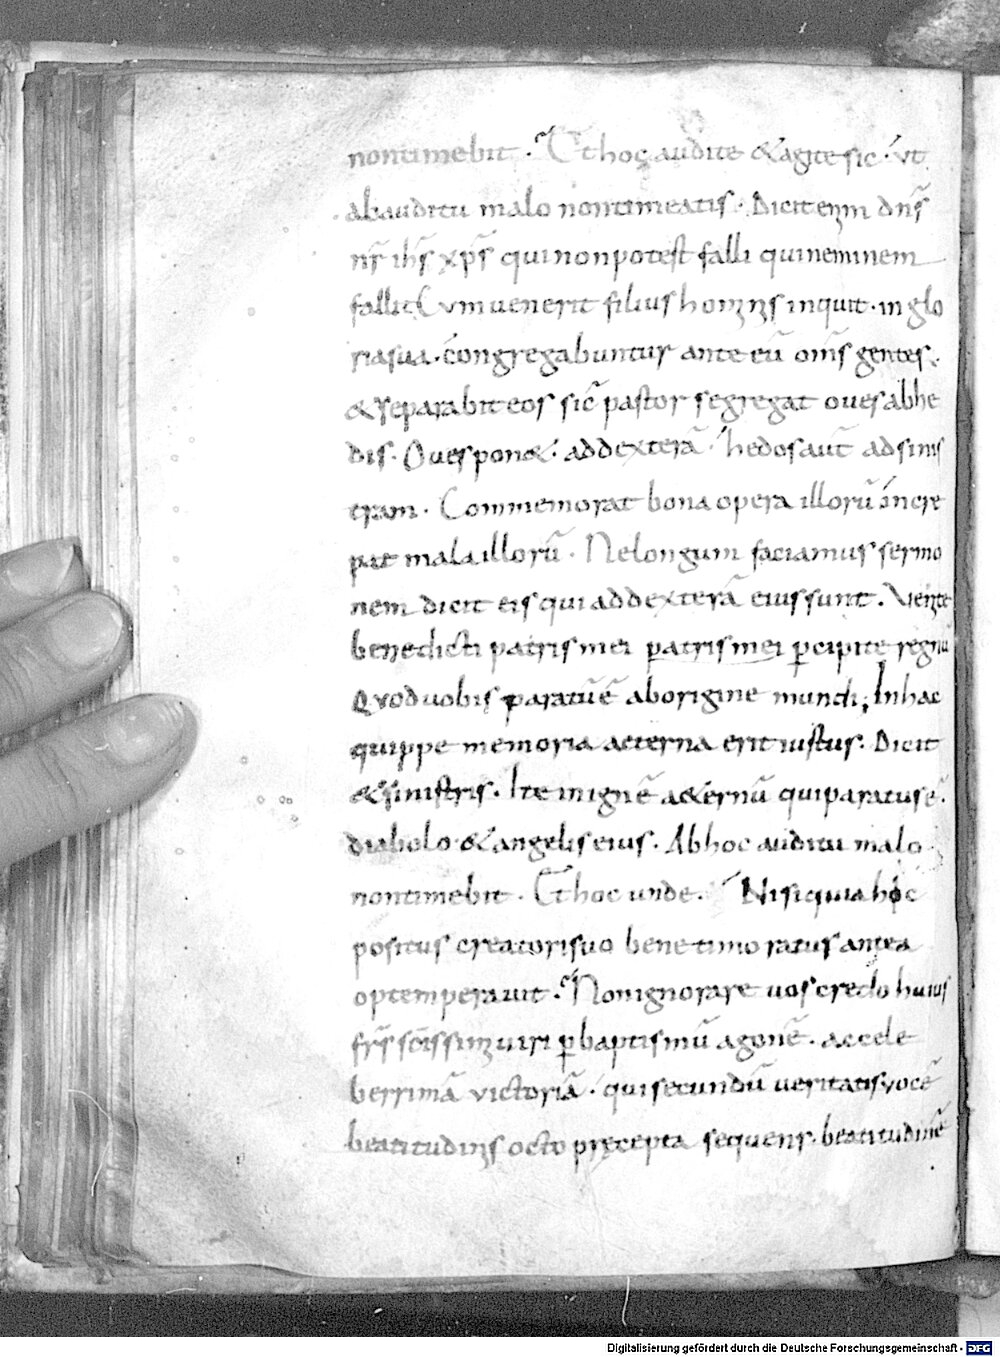 nontimebit · Et hoc audite & agite sic · ut
abauditu malo nontimeatis · Dicit enim dn̄s
nr̄ ih̄s xp̄s qui non potest falli qui neminem
fallit Cum uenerit filius hominis inquit · in glo
riasua · congregabuntur ante eū om̄s gentes ·
& separabit eos sic̄ pastor segregat oues abhe
dis · Oues pon& · addexterā · hedos aut̄ adsinis
tram · Commemorat bona opera illorū incre
pat mala illorū · Nelongum faciamus sermo
nem dicit eis qui addexterā eius sunt · Uenite
benedicti patris mei patris mei ꝑcipite regnū
Quod uobis paratū ē aborigine mundi ; Inhac
quippe memoria aeterna erit iustus · Dicit
& sinistris · Ite inignē a&ernū qui paratus ē ·
diabolo & angelis eius · Abhoc auditu malo
nontimebit · Et hoc unde · Nisi quia hoc
positus creatori suo bene timoratus antea
optemperauit · Nonignorare uos credo huius
fr̄s sc̄issimi uiri ꝑ baptismū agonē · accele
berrimā victoriā · qui secundū ueritatis uocē
beatitudinis octo pręcepta sequens · beatitudinē
Digitalisierung gefördert durch die Deutsche Forschungsgemeinschaft - DFG